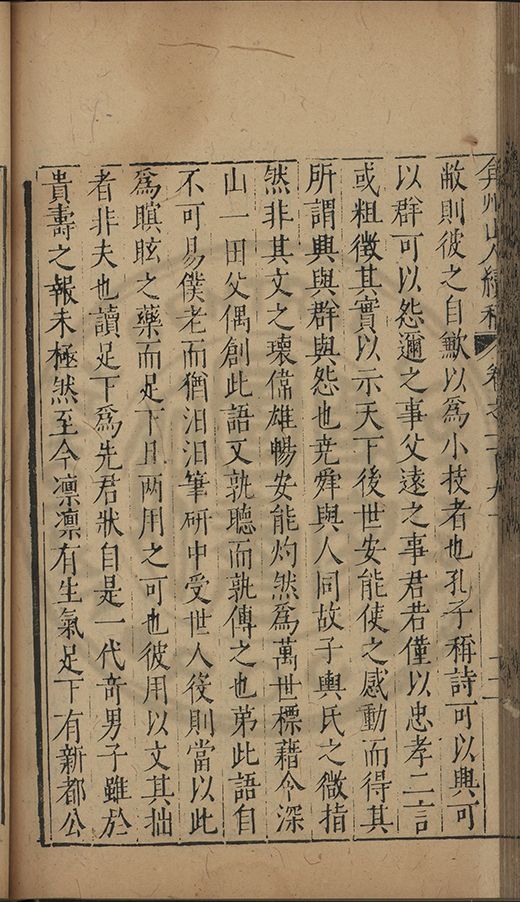 弇州山人續稿 卷之一百九十 十二
敝則彼之自歉以爲小技者也孔子稱詩可以興可
以群可以怨邇之事父遠之事君若僅以忠孝二言
或粗徵其實以示天下後世安能使之感動而得其
所謂興與群與怨也尭舜與人同故子輿氏之微指
然非其文之瓌偉雄暢安能灼然爲萬世標藉令深
山一田父偶創此語又孰聽而孰傳之也苐此語自
不可易僕老而猶汨汨筆研中受世人役則當以此
爲瞑眩之藥而足下且两用之可也彼用以文其拙
者非夫也讀足下爲先君狀自是一代竒男子雖於
貴壽之報未極然至今凛凛有生氣足下有新都公